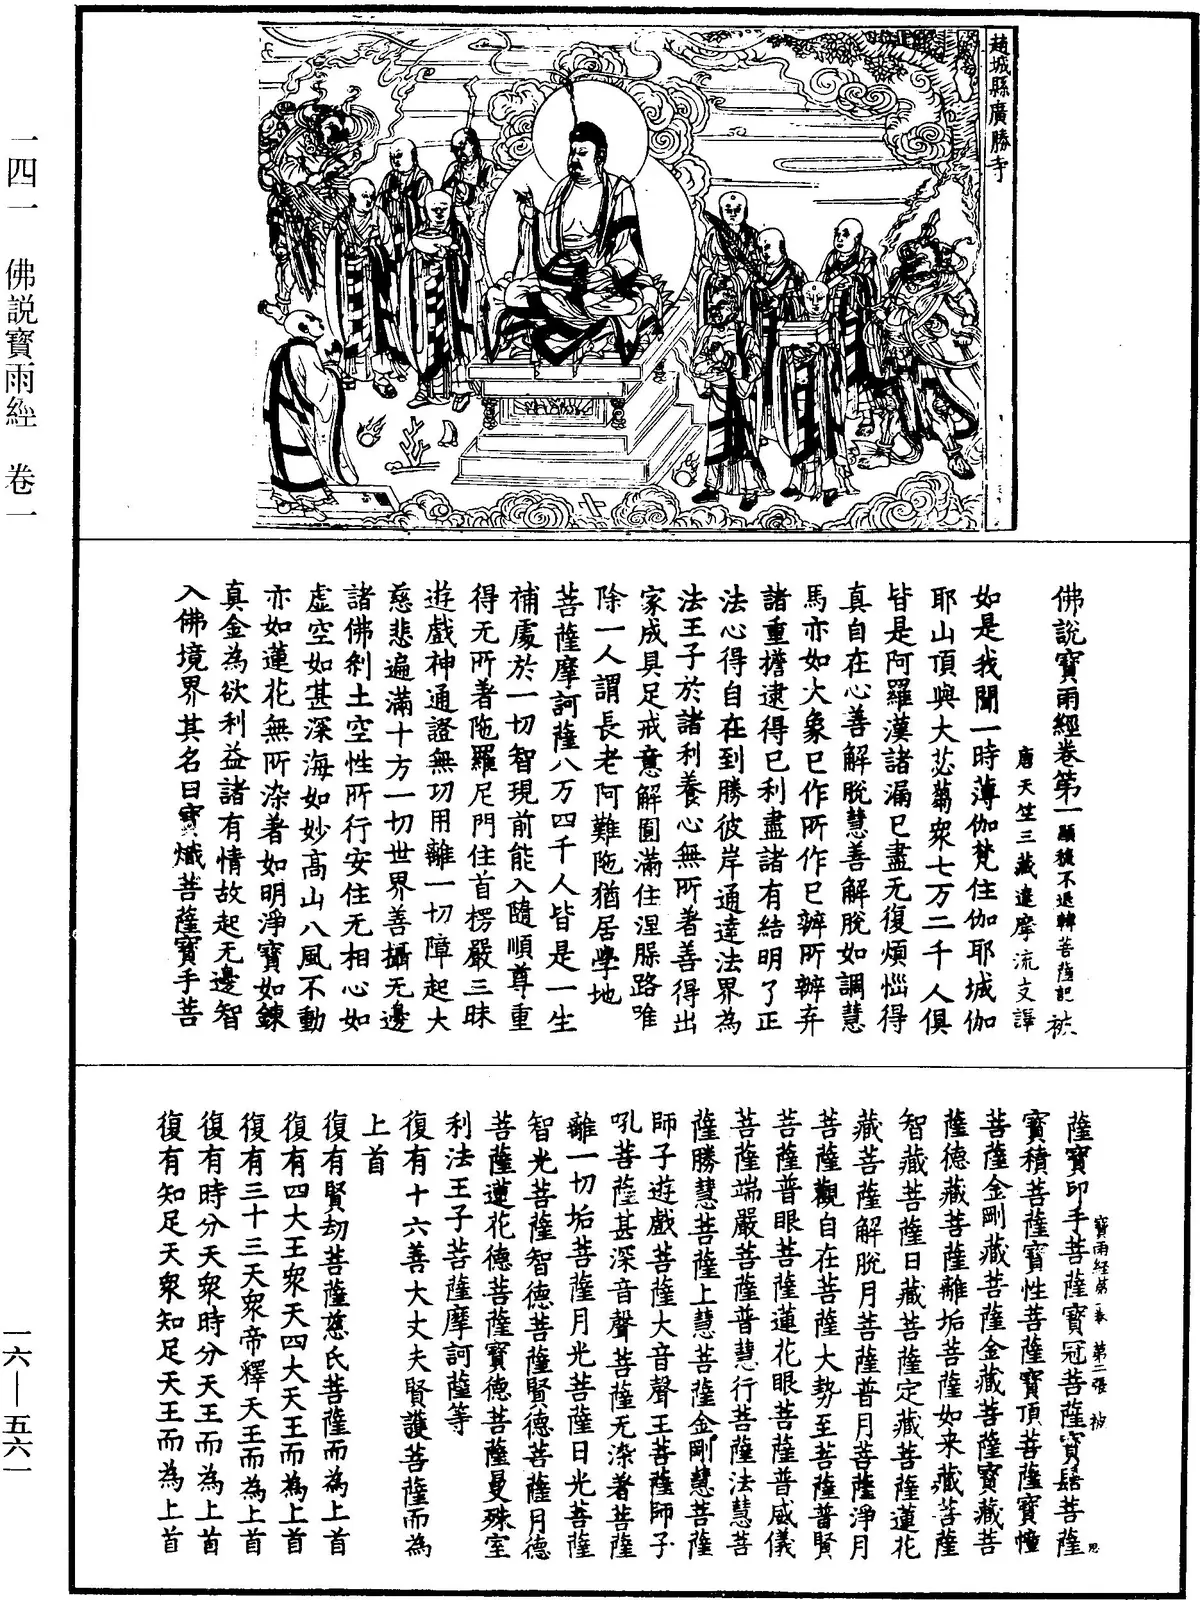 一四一　佛説寶雨經　卷一
趙城縣廣勝寺
佛說寶雨經卷第一 顯授不退轉菩薩記 被
唐天竺三藏達摩流支譯
如是我聞一時薄伽梵住伽耶城伽
耶山頂與大苾蒭衆七万二千人俱
皆是阿羅漢諸漏已盡无復煩惱得
真自在心善解脫慧善解脫如調慧
馬亦如大象已作所作已辦所辦弃
諸重擔逮得已利盡諸有結明了正
法心得自在到勝彼岸通達法界為
法王子於諸利養心無所著善得出
家成具足戒意解圓滿住涅槃路唯
除一人謂長老阿難陁猶居學地
菩薩摩訶薩八万四千人皆是一生
補處於一切智現前能入隨順尊重
得无所著陁羅尼門住首楞嚴三昧
遊戲神通證無功用離一切障起大
慈悲遍滿十方一切世界善攝无邊
諸佛剎土空性所行安住无相心如
虛空如甚深海如妙高山八風不動
亦如蓮花無所染著如明淨寶如鍊
真金為欲利益諸有情故起无邊智
入佛境界其名曰寶熾菩薩寶手菩
寶雨經第一卷　第二張　被
薩寶印手菩薩寶冠菩薩寶髻菩薩
寶積菩薩寶性菩薩寶頂菩薩寶幢
菩薩金剛藏菩薩金藏菩薩寶藏菩
薩德藏菩薩離垢菩薩如来藏菩薩
智藏菩薩日藏菩薩定藏菩薩蓮花
藏菩薩解脫月菩薩普月菩薩淨月
菩薩觀自在菩薩大勢至菩薩普賢
菩薩普眼菩薩蓮花眼菩薩普威儀
菩薩端嚴菩薩普慧行菩薩法慧菩
薩勝慧菩薩上慧菩薩金剛慧菩薩
師子遊戲菩薩大音聲王菩薩師子
吼菩薩甚深音聲菩薩无染著菩薩
離一切垢菩薩月光菩薩日光菩薩
智光菩薩智德菩薩賢德菩薩月德
菩薩蓮花德菩薩寶德菩薩曼殊室
利法王子菩薩摩訶薩等
復有十六善大丈夫賢護菩薩而為
上首
復有賢劫菩薩慈氏菩薩而為上首
復有四大王衆天四大天王而為上首
復有三十三天衆帝釋天王而為上首
復有時分天衆時分天王而為上首
復有知足天衆知足天王而為上首
一六—五六一